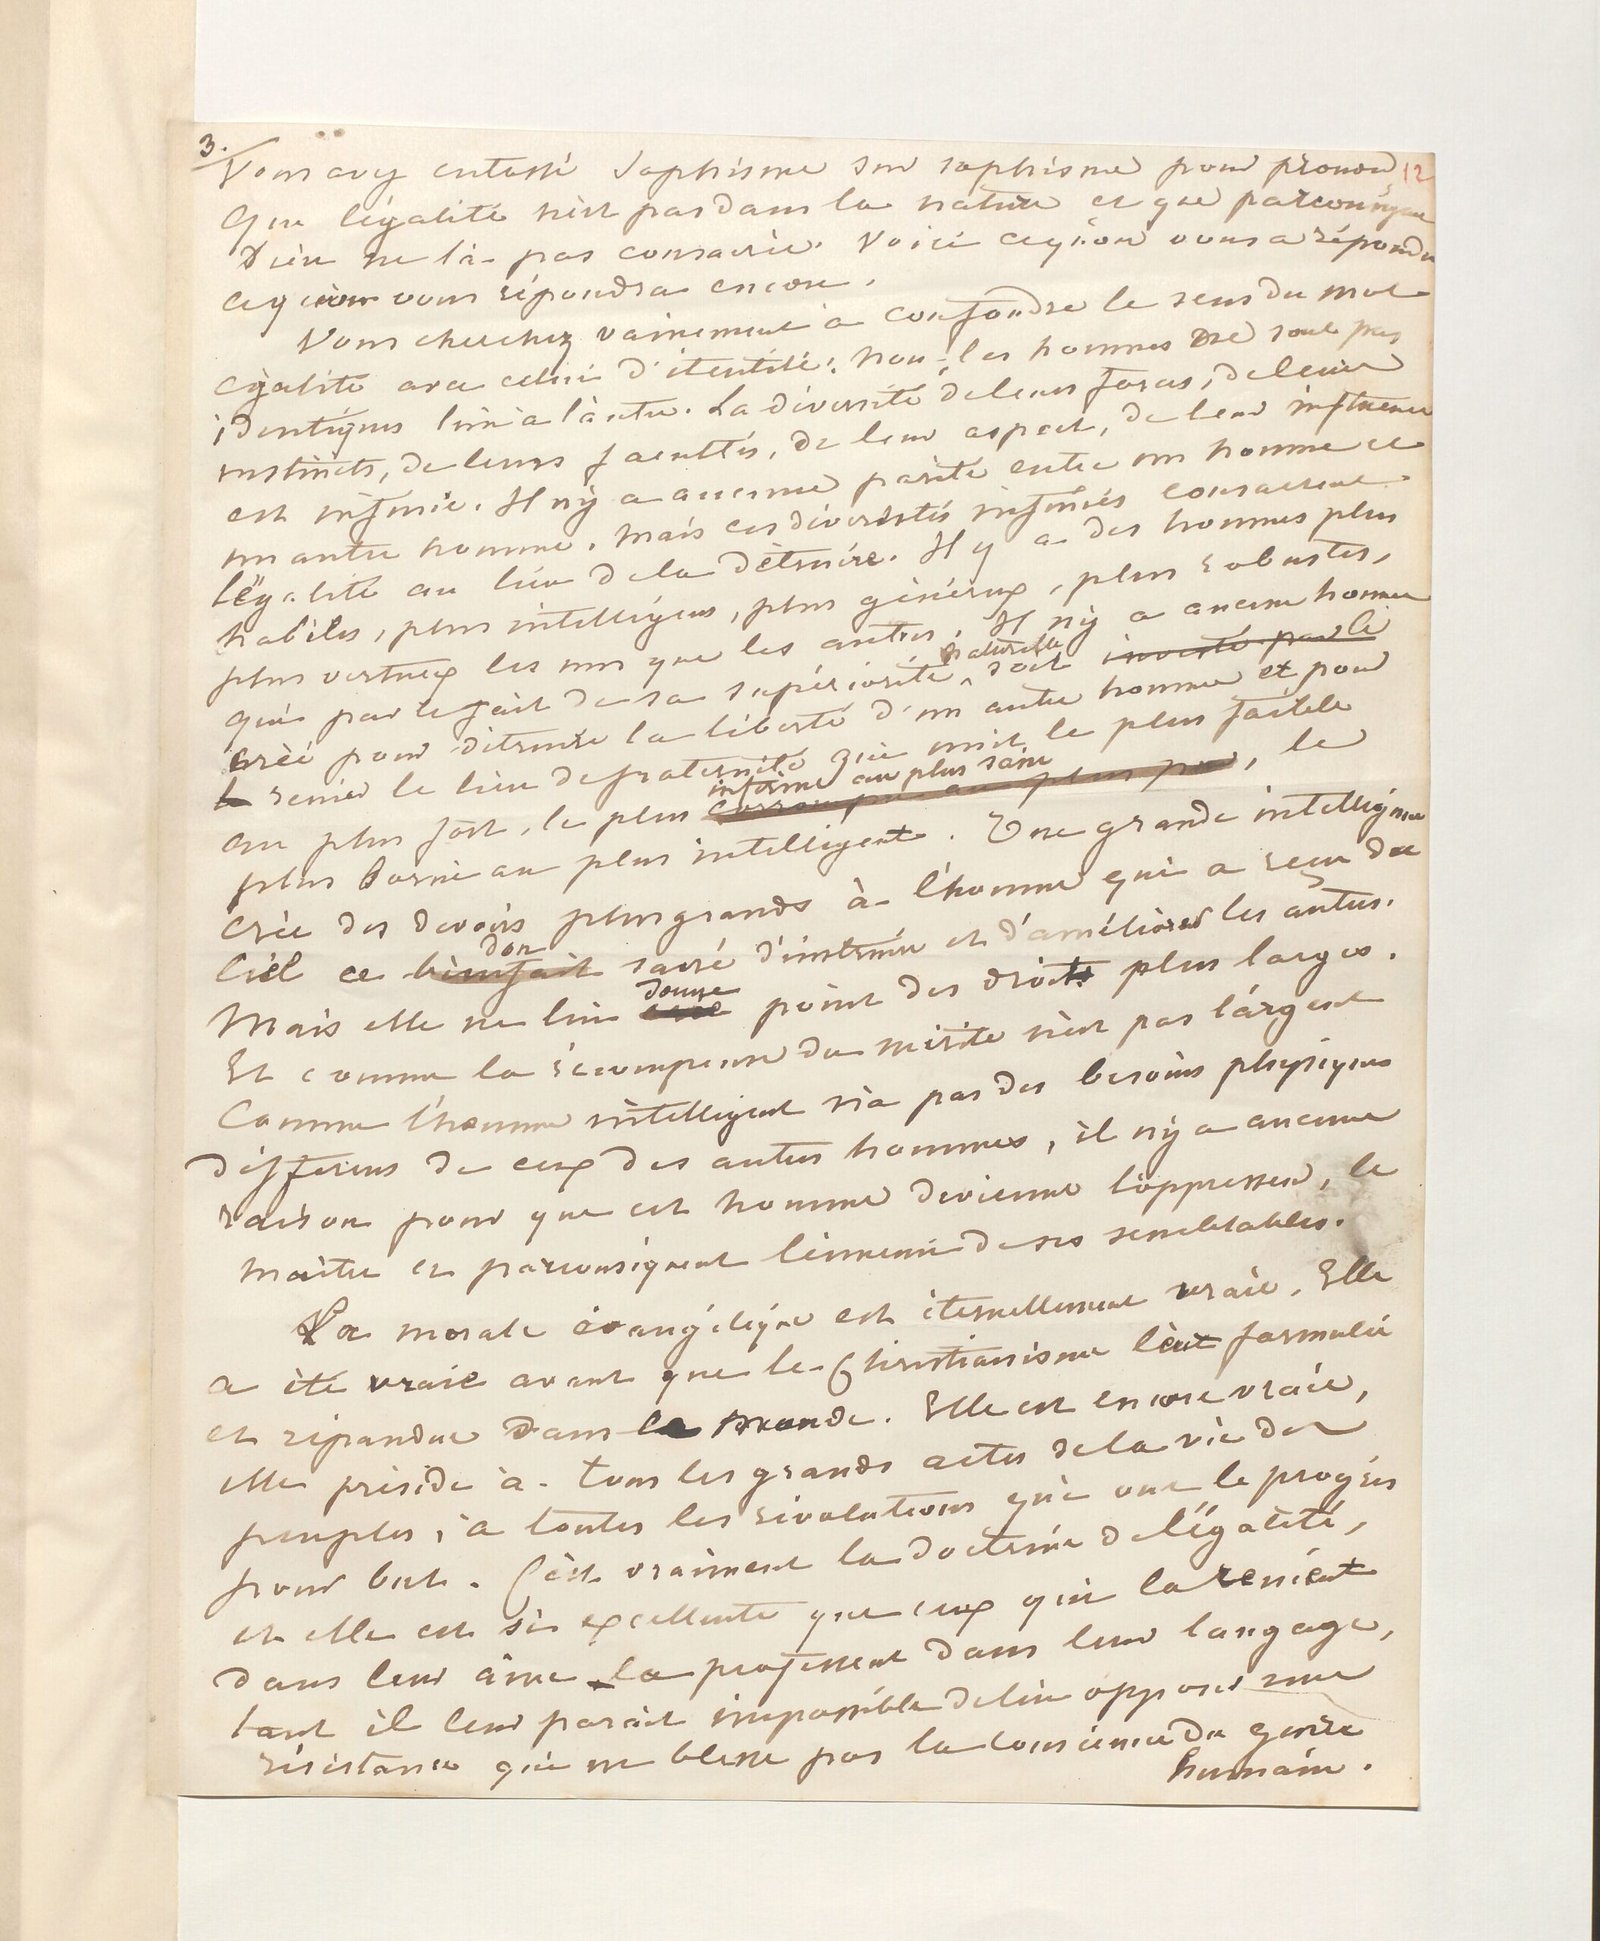 3.
Vous avez entassé sophisme sur sophisme pour prouver 12
que l'égalité n'est pas dans la nature et que parconséquent
Dieu ne l'a pas consacrée. Voici ce qu'on vous a répondu
ce qu'on vous répondra encore.
Vous cherchez vainement à confondre le sens du mot
égalité avec celui d'identité. Non, les hommes ne sont pas
identiques l'un à l'autre. La diversité de leurs forces, de leurs
instincts, de leurs facultés, de leur aspect, de leur influence
est infinie. Il n'y a aucune parité entre un homme et
un autre homme. Mais ces diversités infinies consacrent
l'égalité au lieu de la détruire. Il y a des hommes plus
habiles, plus intelligens, plus généreux, plus robustes,
plus vertueux les uns que les autres. Il n'y a aucun homme
qui par le fait de sa supériorité naturelle, soit investi par le
créé pour détruire la liberté d'un autre homme et pour
renier le lien de fraternité qui unit le plus faible
au plus fort, le plus corrompu au plus pur infirme au plus sain, le
plus borné au plus intelligent. Une grande intelligence
crée des devoirs plus grands à l'homme qui a reçu du
Ciel ce bienfait don sacré d'instruire et d'améliorer les autres.
Mais elle ne lui donne point des droits plus larges.
Et comme la récompense du mérite n'est pas l'argent
Comme l'homme intelligent n'a pas des besoins physiques
differens de ceux des autres hommes, il n'y a aucune
raison pour que cet homme devienne l'oppresseur, le
maitre et parconséquent l'ennemi de ses semblables.
La morale évangélique est éternellement vraie. Elle
a été vraie avant que le Christianisme l'eut formulée
et répandue dans le monde. Elle est encore vraie,
elle préside à tous les grands actes de la vie des
peuples, à toutes les révolutions qui ont le progrès
pour but. C'est vraiment la doctrine de l'égalité,
et elle est si excellente que ceux qui la renient
dans leur âme la professent dans leur langage,
tant il leur parait impossible de lui opposer une
résistance qui ne blesse pas la conscience du genre
humain.